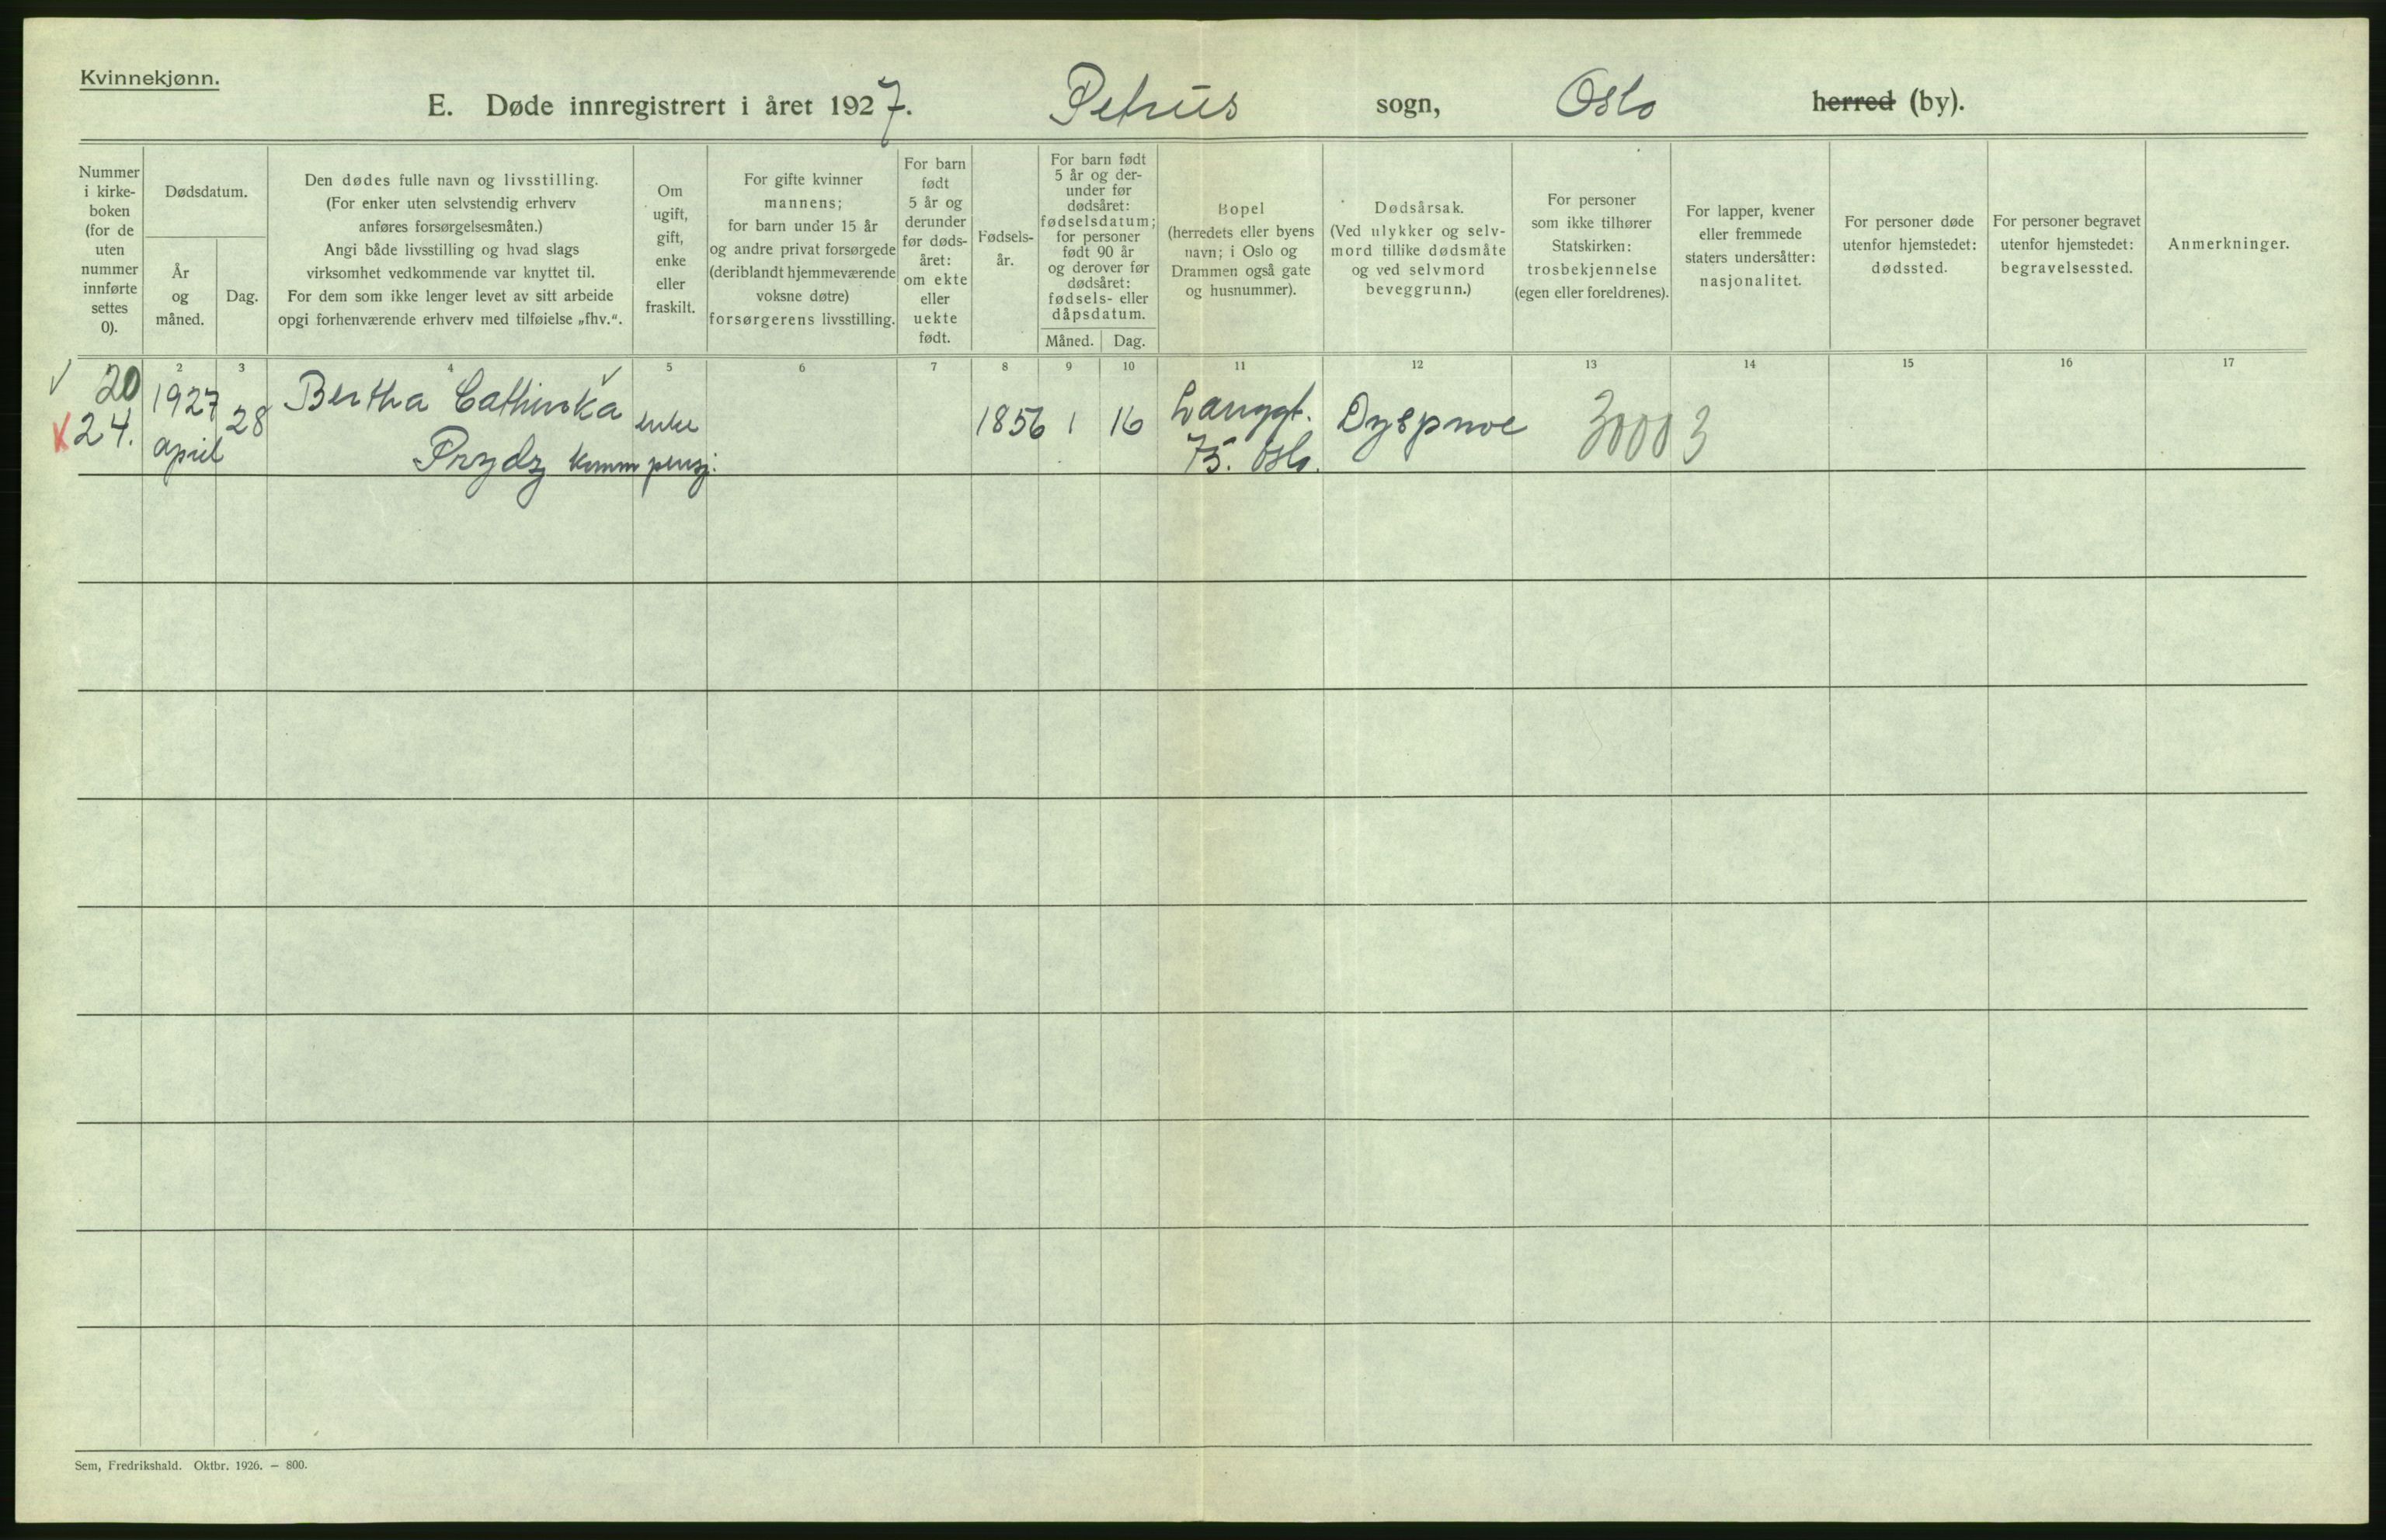 Kvinnekjønn.
E. Døde innregistrert i året 1927. Petrus sogn, Oslo herred (by).
Nummer
i kirke-
boken
(for de
uten
nummer
innførte
settes
0).
Dødsdatum.
År
og
måned.
Dag.
Den dødes fulle navn og livsstilling.
(For enker uten selvstendig erhverv
anføres forsørgelsesmåten.)
Angi både livsstilling og hvad slags
virksomhet vedkommende var knyttet til.
For dem som ikke lenger levet av sitt arbeide
opgi forhenværende erhverv med tilføielse „fhv.“.
Om
ugift,
gift,
enke
eller
fraskilt.
For gifte kvinner
mannens;
for barn under 15 år
og andre privat forsørgede
(deriblandt hjemmeværende
voksne døtre)
forsørgerens livsstilling.
For barn
født
5 år og
derunder
før døds-
året:
om ekte
eller
uekte
født.
Fødsels-
år.
For barn født
5 år og der-
under før
dødsåret:
fødselsdatum;
for personer
født 90 år
og derover før
dødsåret:
fødsels- eller
dåpsdatum.
Måned. Dag.
Bopel
(herredets eller byens
navn; i Oslo og
Drammen også gate
og husnummer).
Dødsårsak.
(Ved ulykker og selv-
mord tillike dødsmåte
og ved selvmord
beveggrunn.)
For personer
som ikke tilhører
Statskirken:
trosbekjennelse
(egen eller foreldrenes).
For lapper, kvener
eller fremmede
staters undersåtter:
nasjonalitet.
For personer døde
utenfor hjemstedet:
dødssted.
For personer begravet
utenfor hjemstedet:
begravelsessted.
Anmerkninger.
2 3 4 5 6 7 8 9 10 11 12 13 14 15 16 17
20
24.
1927
april
28
Bertha Cathinka
Prydz komm pensj.
enke
1856
1
16
Langgt.
75. Oslo.
Dyspnoe
30003
Sem, Fredrikshald. Oktbr. 1926. — 800.